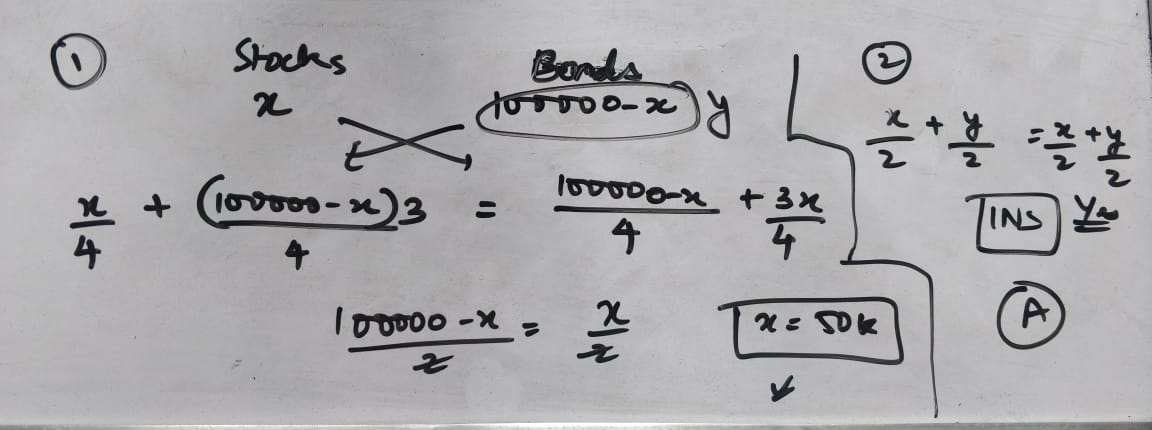 ①
Stocks Bonds
x 100000-x y
x/4 + (100000-x)3/4 = 100000-x/4 + 3x/4
100000-x/2 = x/2
x = 50k
②
x/2 + y/2 = x/2 + y/2
INS
A